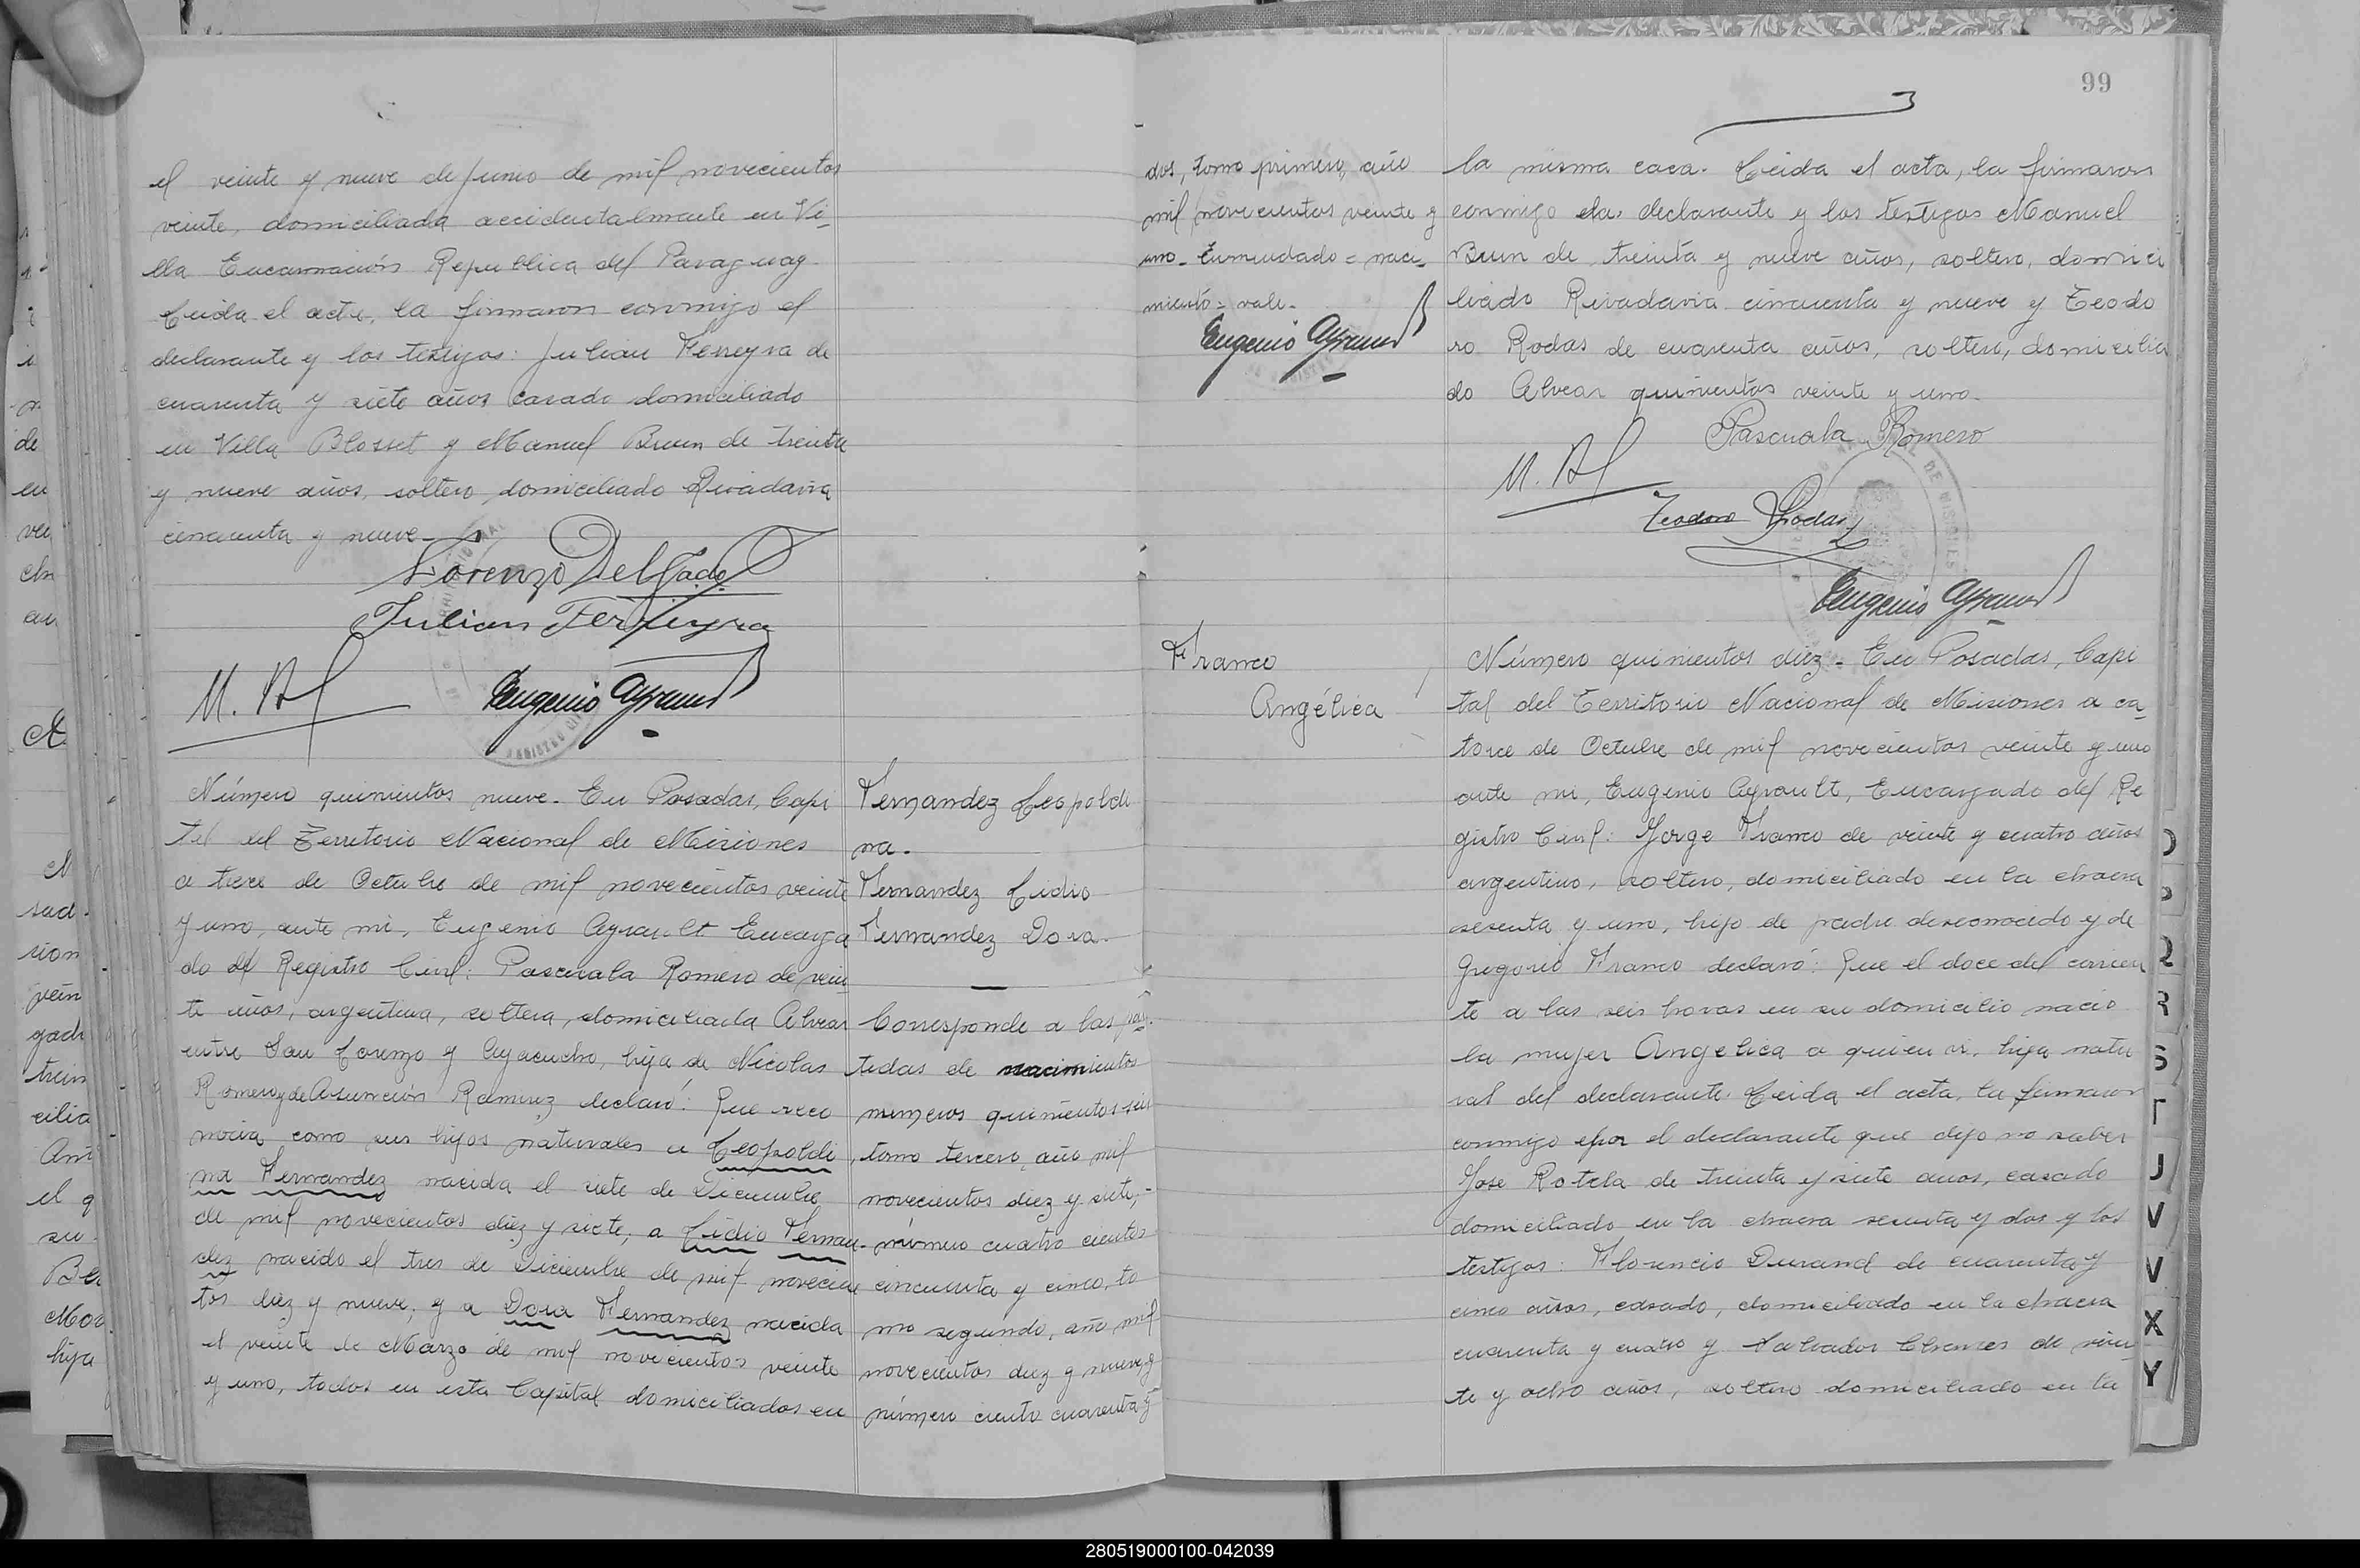 el veinte y nueve de Junio de mil novecientos
veinte, domiciliada accidentalmente en Vi-
lla Encarnación Republica del Paraguay.
Leida el acta, la firmaron conmigo el
declarante y los testigos: Julian Ferreyra de
cuarenta y siete años casado domiciliado
en Villa Blosset y Manuel Brun de treinta
y nueve años, soltero, domiciliado Rivadavia
cincuenta y nueve.-
Lorenzo Delgado
Julian Ferreyra
Eugenio Ayrault
Número quinientos nueve. En Posadas, Capi
tal del Territorio Nacional de Misiones
a trece de Octubre de mil novecientos veinte
y uno, ante mi, Eugenio Ayrault Encarga
do del Registro Civil: Pascuala Romero de vein
te años, argentina, soltera, domiciliada Alvear
entre San Lorenzo y Ayacucho, hija de Nicolas
Romero y de Asunción Ramirez declaró: Que reco
nocia como sus hijos naturales a Leopoldi
na Fernandez nacida el siete de Diciembre
de mil novecientos diez y siete, a Lidio Fernan-
dez nacido el tres de Diciembre de mil novecien
tos diez y nueve, y a Dora Fernandez nacida
el veinte de Marzo de mil novecientos veinte
y uno, todos en esta Capital domiciliados en
Fernandez Leopoldi
na.
Fernandez Lidio
Fernandez Dora.
Corresponde a las par-
tidas de nacimientos
numeros quinientos seis
, tomo tercero, año mil
novecientos diez y siete,-
número cuatro cientos
cincuenta y cinco, to
mo segundo, año mil
novecientos diez y nueve y
número ciento cuarenta y
99
dos, tomo primero, año
mil novecientos veinte y
uno. Enmendado = naci-
miento = vale.
Eugenio Ayrault
la misma casa. Leida el acta, la firmaron
conmigo la declarante y los testigos Manuel
Brun de treinta y nueve años, soltero, domici
liado Rivadavia cincuenta y nueve y Teodo
ro Rodas de cuarenta años, soltero, domicilia
do Alvear quinientos veinte y uno.
Pascuala Romero
Teodoro Rodas
Eugenio Ayrault
Franco
Angélica
Número quinientos diez - En Posadas, Capi
tal del Territorio Nacional de Misiones a ca-
torce de Octubre de mil novecientos veinte y uno
ante mi, Eugenio Ayrault, Encargado del Re
gistro Civil: Jorge Franco de veinte y cuatro años
argentino, soltero, domiciliado en la chacra
sesenta y uno, hijo de padre desconocido y de
Gregoria Franco declaró: Que el doce del corrien
te a las seis horas en su domicilio nacio
la mujer Angelica a quien vi, hija natu
ral del declarante. Leida el acta, la firmaron
conmigo por el declarante que dijo no saber
Jose Rotela de treinta y siete años, casado
domiciliado en la chacra sesenta y dos y los
testigos: Florencio Durand de cuarenta y
cinco años, casado, domiciliado en la chacra
cuarenta y cuatro y Salvador de vein-
te y ocho años, soltero domiciliado en la
Q
R
S
T
J
V
V
X
Y
280519000100-042039